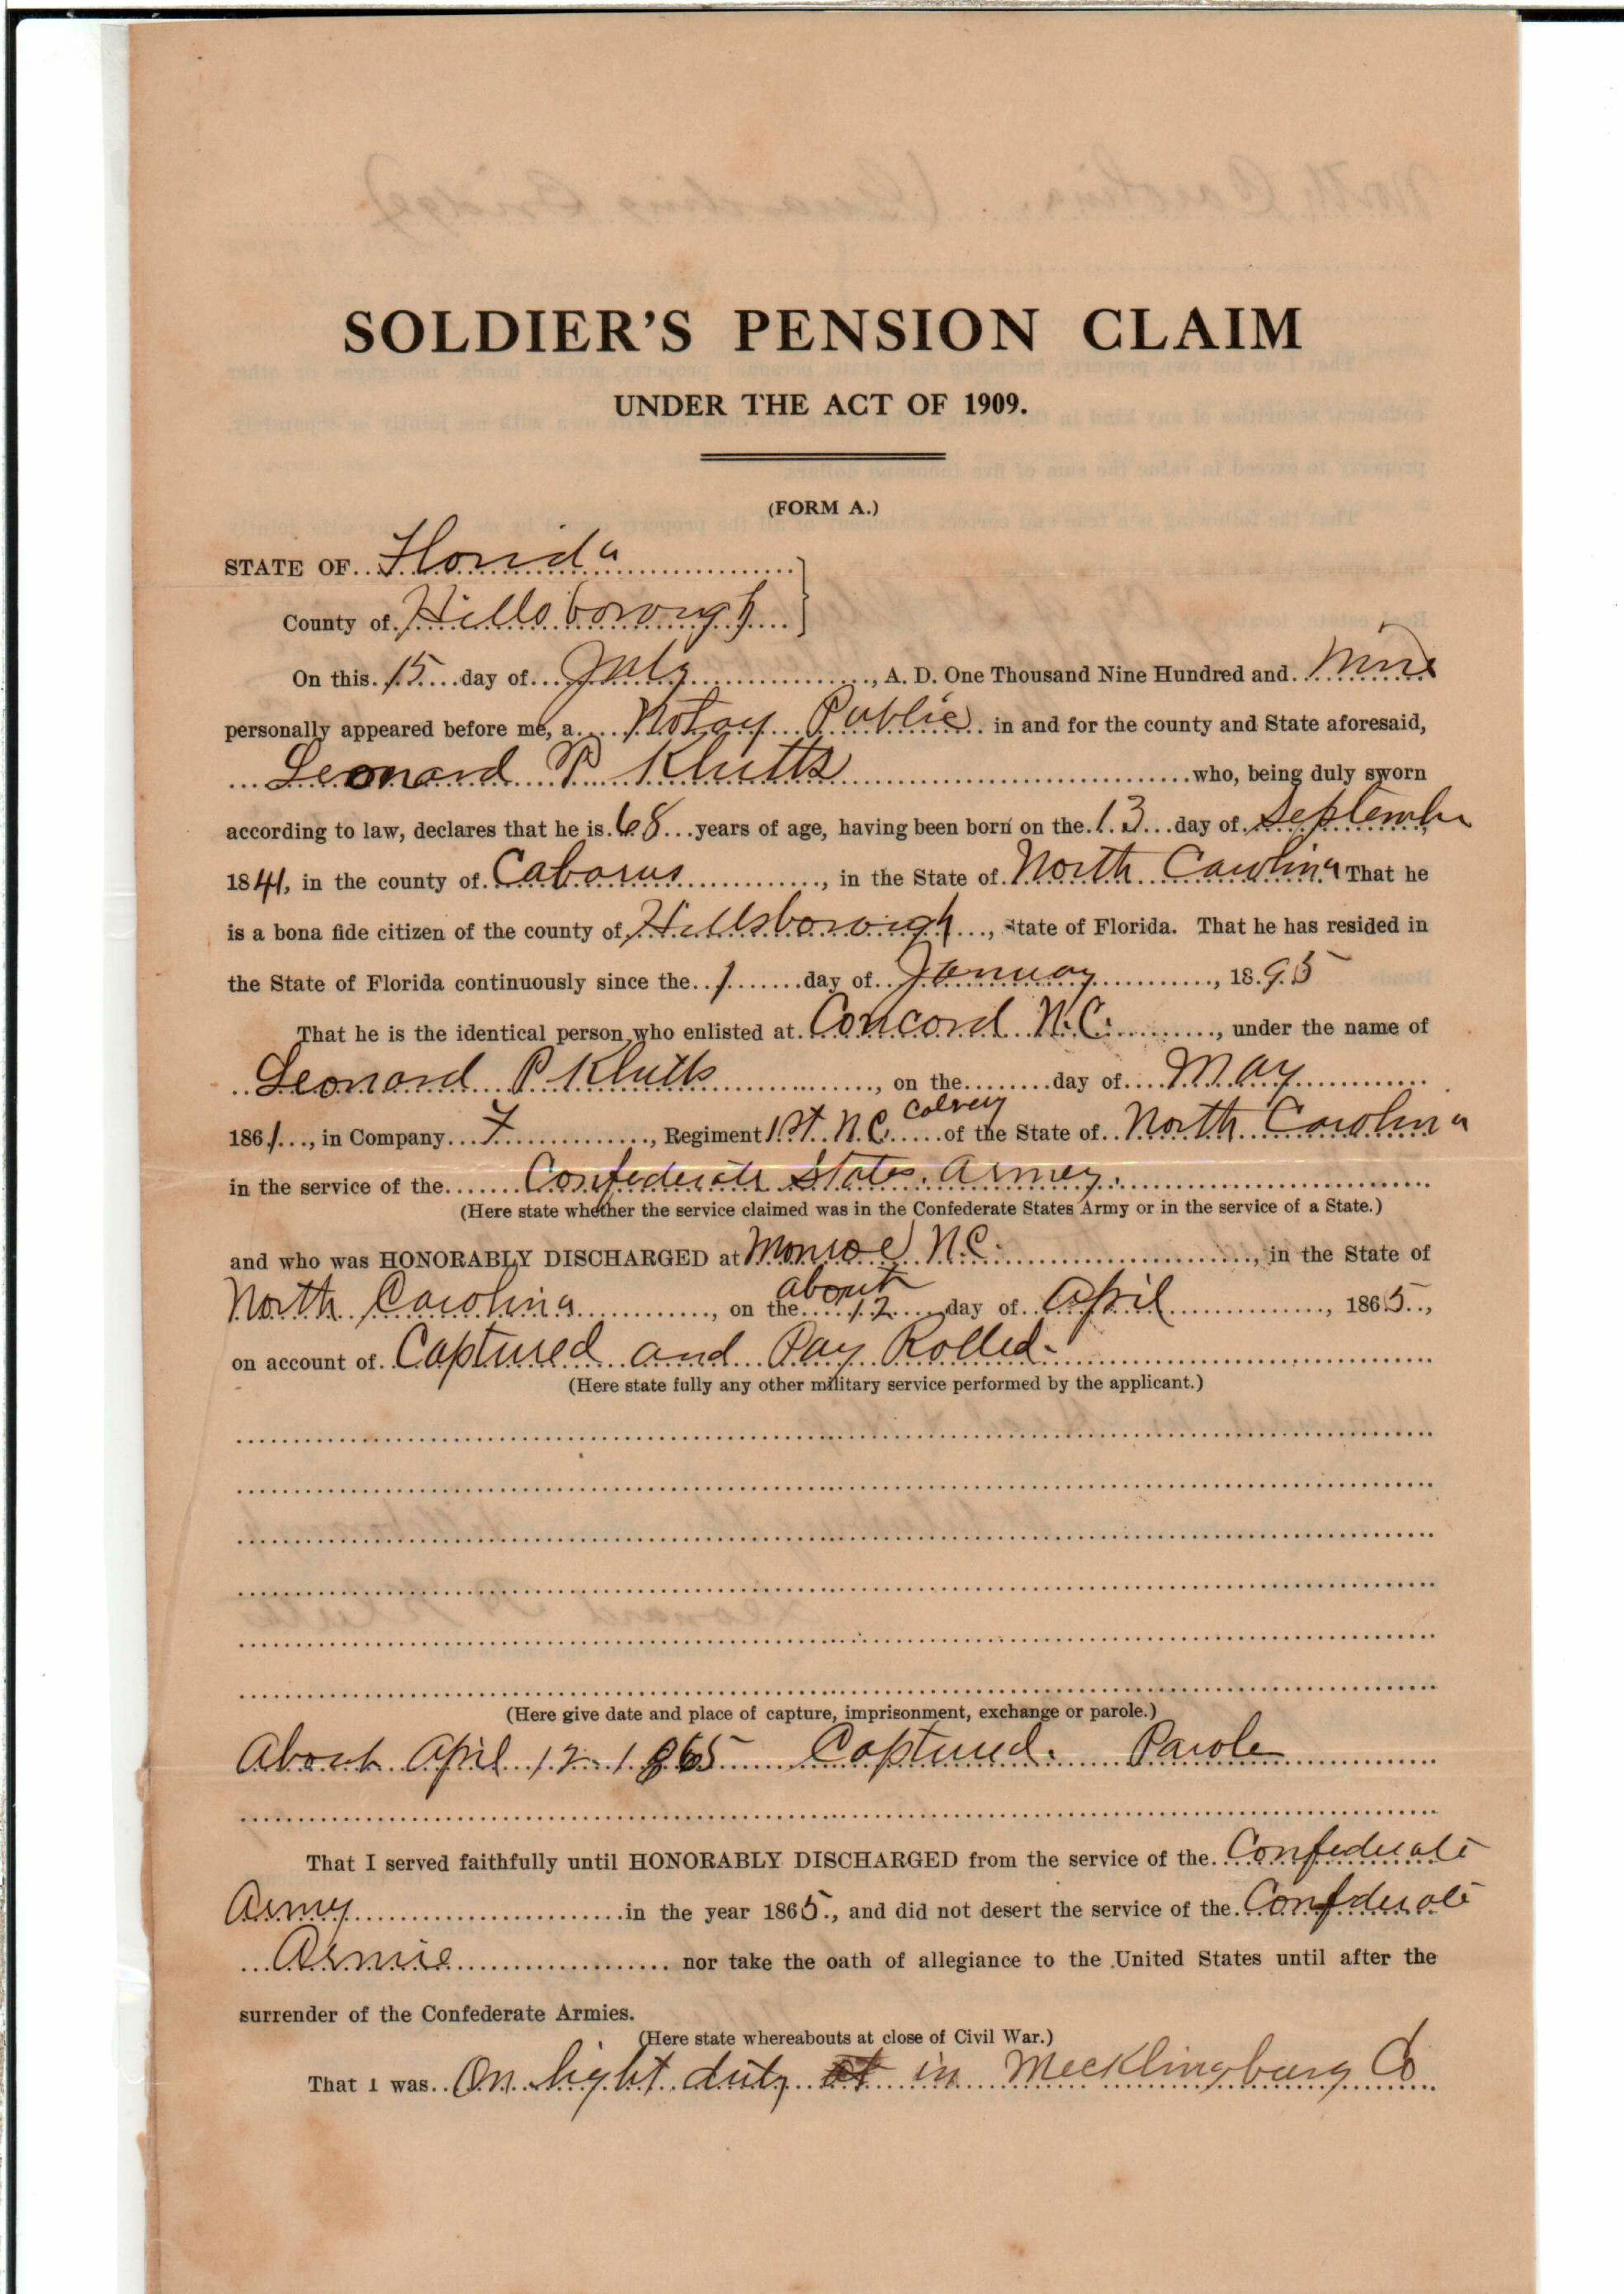 SOLDIER'S PENSION CLAIM
UNDER THE ACT OF 1909.
(FORM A.)
STATE OF Florida
County of Hillsborough
On this 15 day of July, A. D. One Thousand Nine Hundred and Nine
personally appeared before me, a Notay Public in and for the county and State aforesaid,
Leonard P Klutts who, being duly sworn
according to law, declares that he is 68 years of age, having been born on the 13 day of September
1841, in the county of Cabarus, in the State of North Carolina That he
is a bona fide citizen of the county of Hillsborough, State of Florida. That he has resided in
the State of Florida continuously since the 1 day of January, 1895
That he is the identical person who enlisted at Concord N.C., under the name of
Leonard P Klutts, on the day of May
1861, in Company F, Regiment 1st N.C. Calvery of the State of North Carolina
in the service of the Confederate States Army.
(Here state whether the service claimed was in the Confederate States Army or in the service of a State.)
and who was HONORABLY DISCHARGED at Monroe N.C., in the State of
North Carolina, on the about 12 day of April, 1865,
on account of Captured and Pay Rolled.
(Here state fully any other military service performed by the applicant.)
(Here give date and place of capture, imprisonment, exchange or parole.)
About April 12 1865 Captured. Parole
That I served faithfully until HONORABLY DISCHARGED from the service of the Confederate
Army in the year 1865, and did not desert the service of the Confederate
Armie nor take the oath of allegiance to the United States until after the
surrender of the Confederate Armies.
(Here state whereabouts at close of Civil War.)
That I was On light duty in Mecklingburg Co